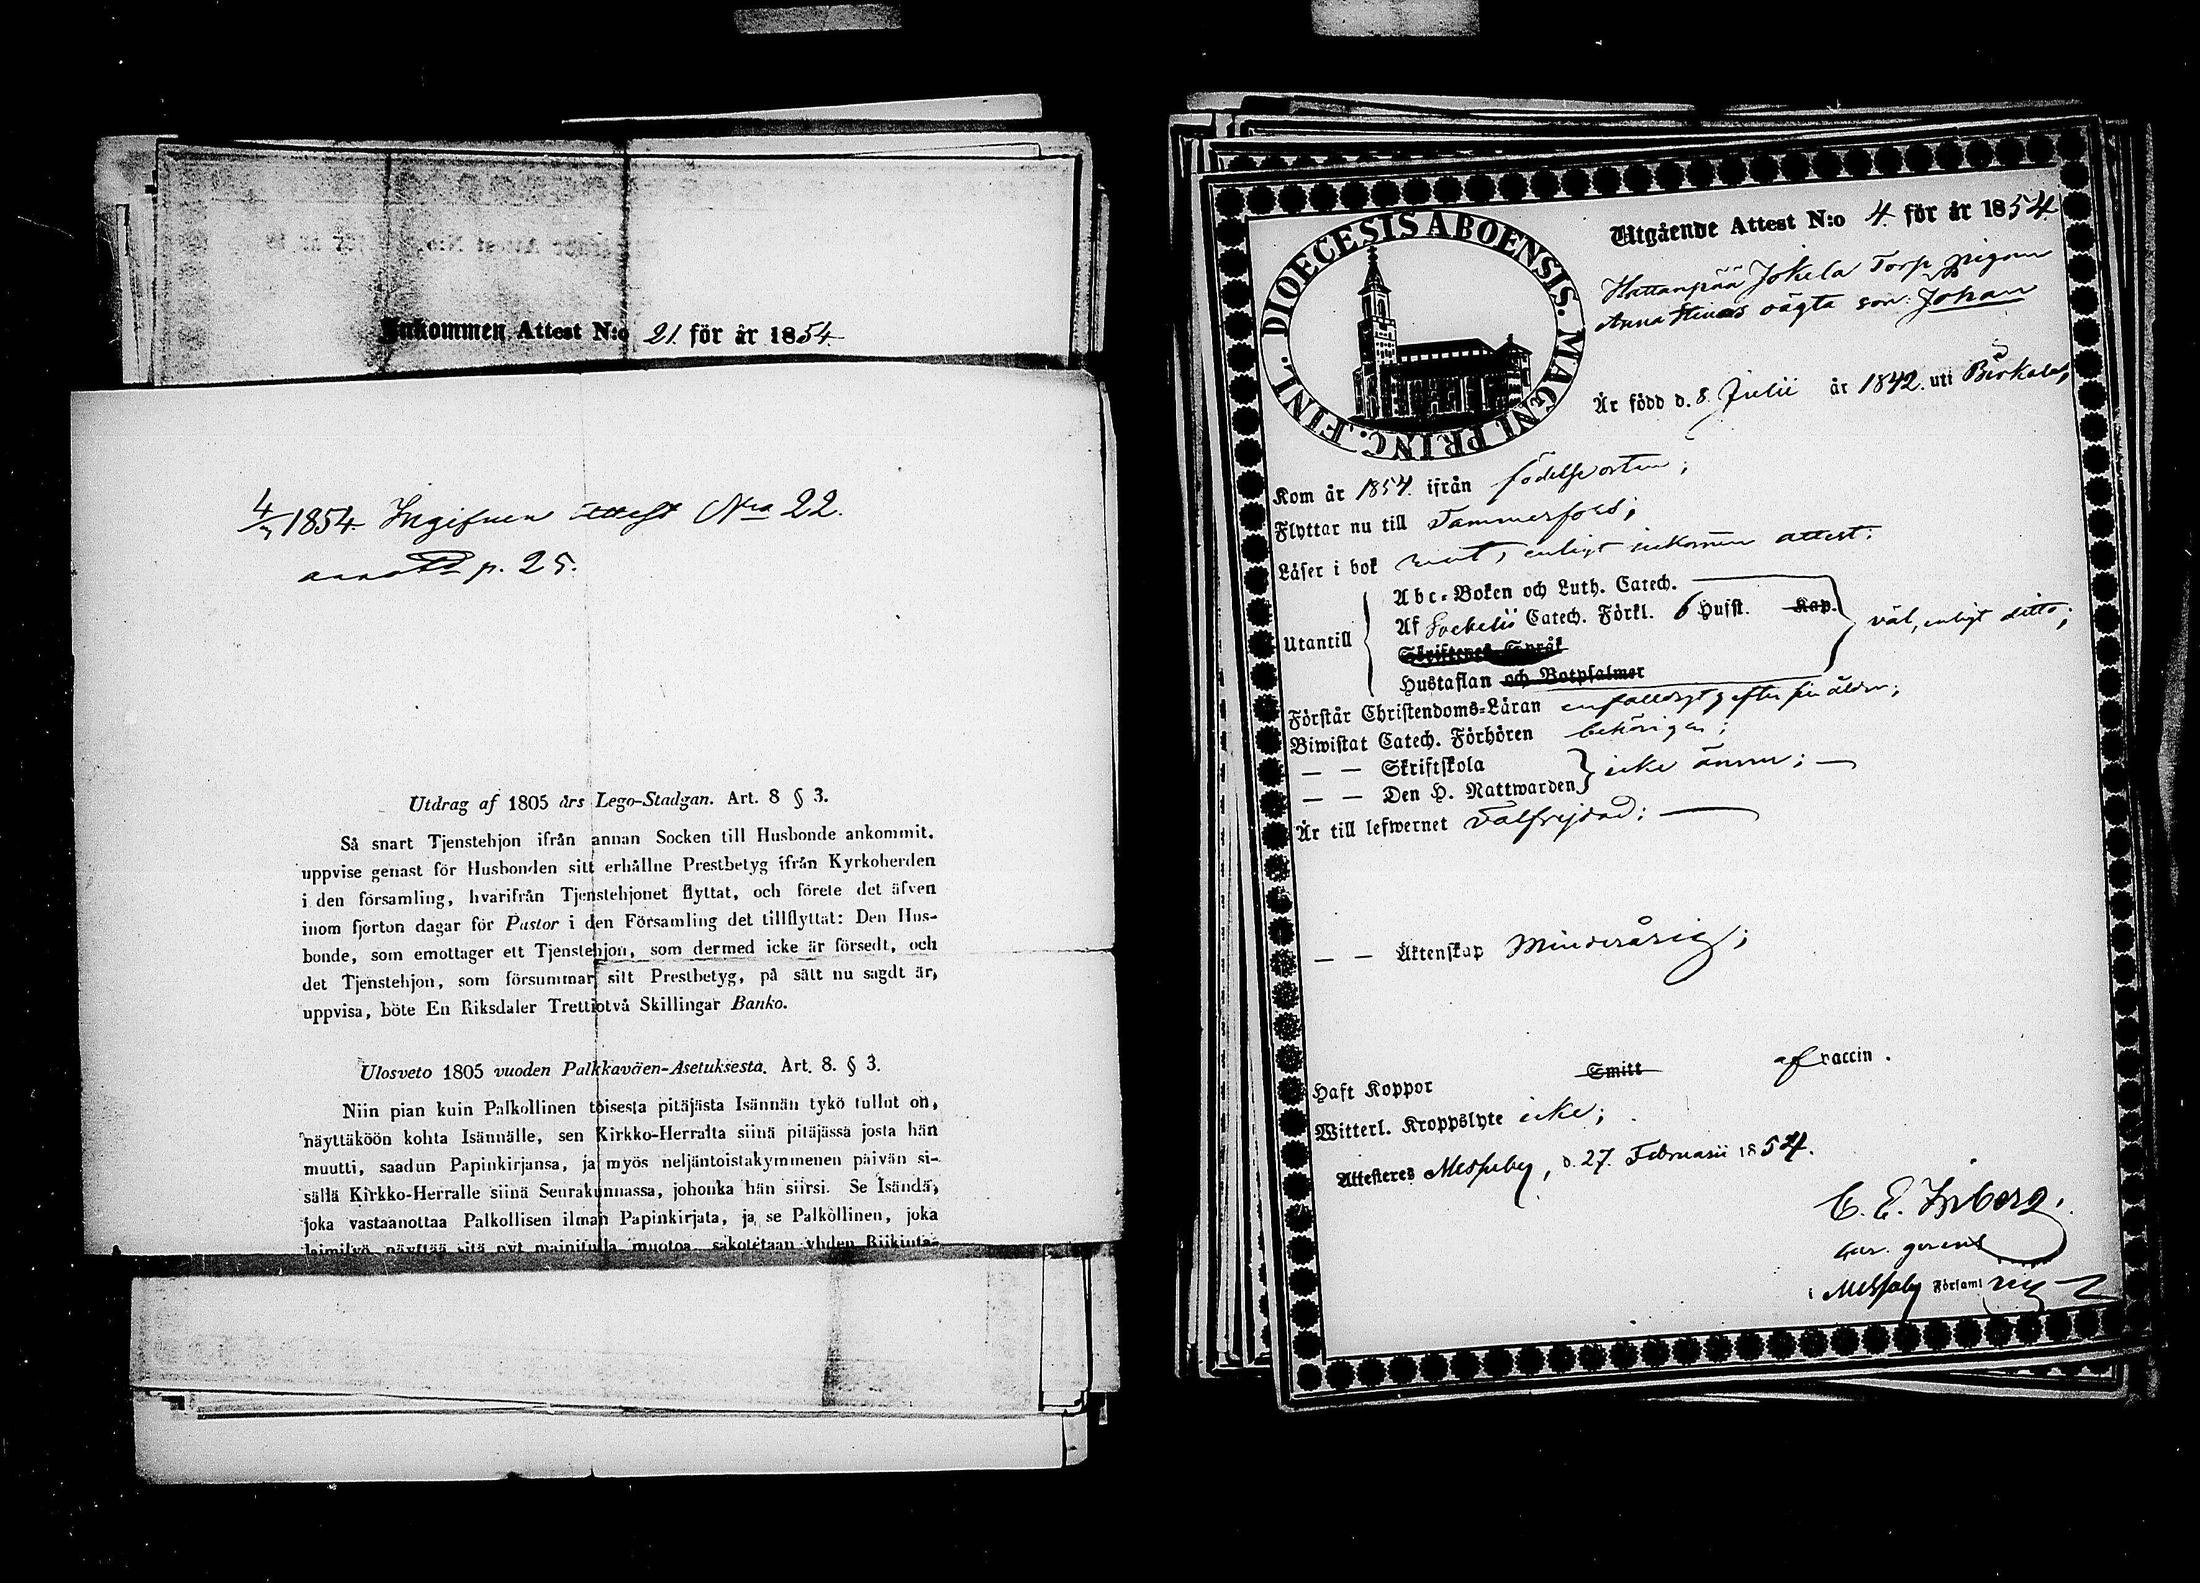 Inkommen Attest N:o 21. för år 1854
4/3 1854. Ingifven attest Nro 22.
annot. p. 25.
Utdrag af 1805 års Lego-Stadgan. Art. 8 § 3.
Så snart Tjenstehjon ifrån annan Socken till Husbonde ankommit,
uppvise genast för Husbonden sitt erhållne Prestbetyg ifrån Kyrkoherden
i den församling, hvarifrån Tjenstehjonet flyttat, och förete det äfven
inom fjorton dagar för Pastor i den Församling det tillflyttat: Den Hus-
bonde, som emottager ett Tjenstehjon, som dermed icke är försedt, och
det Tjenstehjon, som försummar sitt Prestbetyg, på sätt nu sagdt är,
uppvisa, böte En Riksdaler Trettiotvå Skillingar Banko.
Ulosveto 1805 vuoden Palkkaväen-Asetuksesta. Art. 8. § 3.
Niin pian kuin Palkollinen toisesta pitäjästä Isännän tykö tullut on,
näyttäköön kohta Isännälle, sen Kirkko-Herralta siinä pitäjässä josta hän
muutti, saadun Papinkirjansa, ja myös neljäntoistakymmenen päivän si-
sällä Kirkko-Herralle siinä Seurakunnassa, johonka hän siirsi. Se Isändä,
joka vastaanottaa Palkollisen ilman Papinkirjata, ja se Palkollinen, joka
laimilyö näyttää sitä nyt mainitulla muotoa, sakotetaan yhden Riikinta-
DIOECESIS ABOENSIS. MAGNI PRINC. FINL.
Utgående Attest N:o 4. för år 1854
Hattanpää Jokela Torp pigan
Anna Stinas oägta son Johan
Är född d. 8 Julii år 1842. uti Birkala,
Kom år 1854. ifrån födelseorten;
Flyttar nu till Tammerfors;
Läser i bok rent, enligt inkommen attest;
Abc-Boken och Luth. Catech.
Utantill Af Catech. Förkl. 6 Hufst. Kap. väl, enligt ditto;
Skriftenes Språk
Hustaflan och Botpsalmer
Förstår Christendoms-Läran enfaldigt efter sin ålder;
Biwistat Catech. Förhören behörigen;
— — Skriftskola
— — Den H. Nattwarden icke ännu; —
Är till lefwernet välfrejdad; —
— — Äktenskap Minderårig;
Haft Koppor Smitt af vaccin.
Witterl. Kroppslyte icke;
Attesteras Messuby, d. 27. Februarii 1854.
C. E. Friberg.
cur. gerens
i Messuby Församling